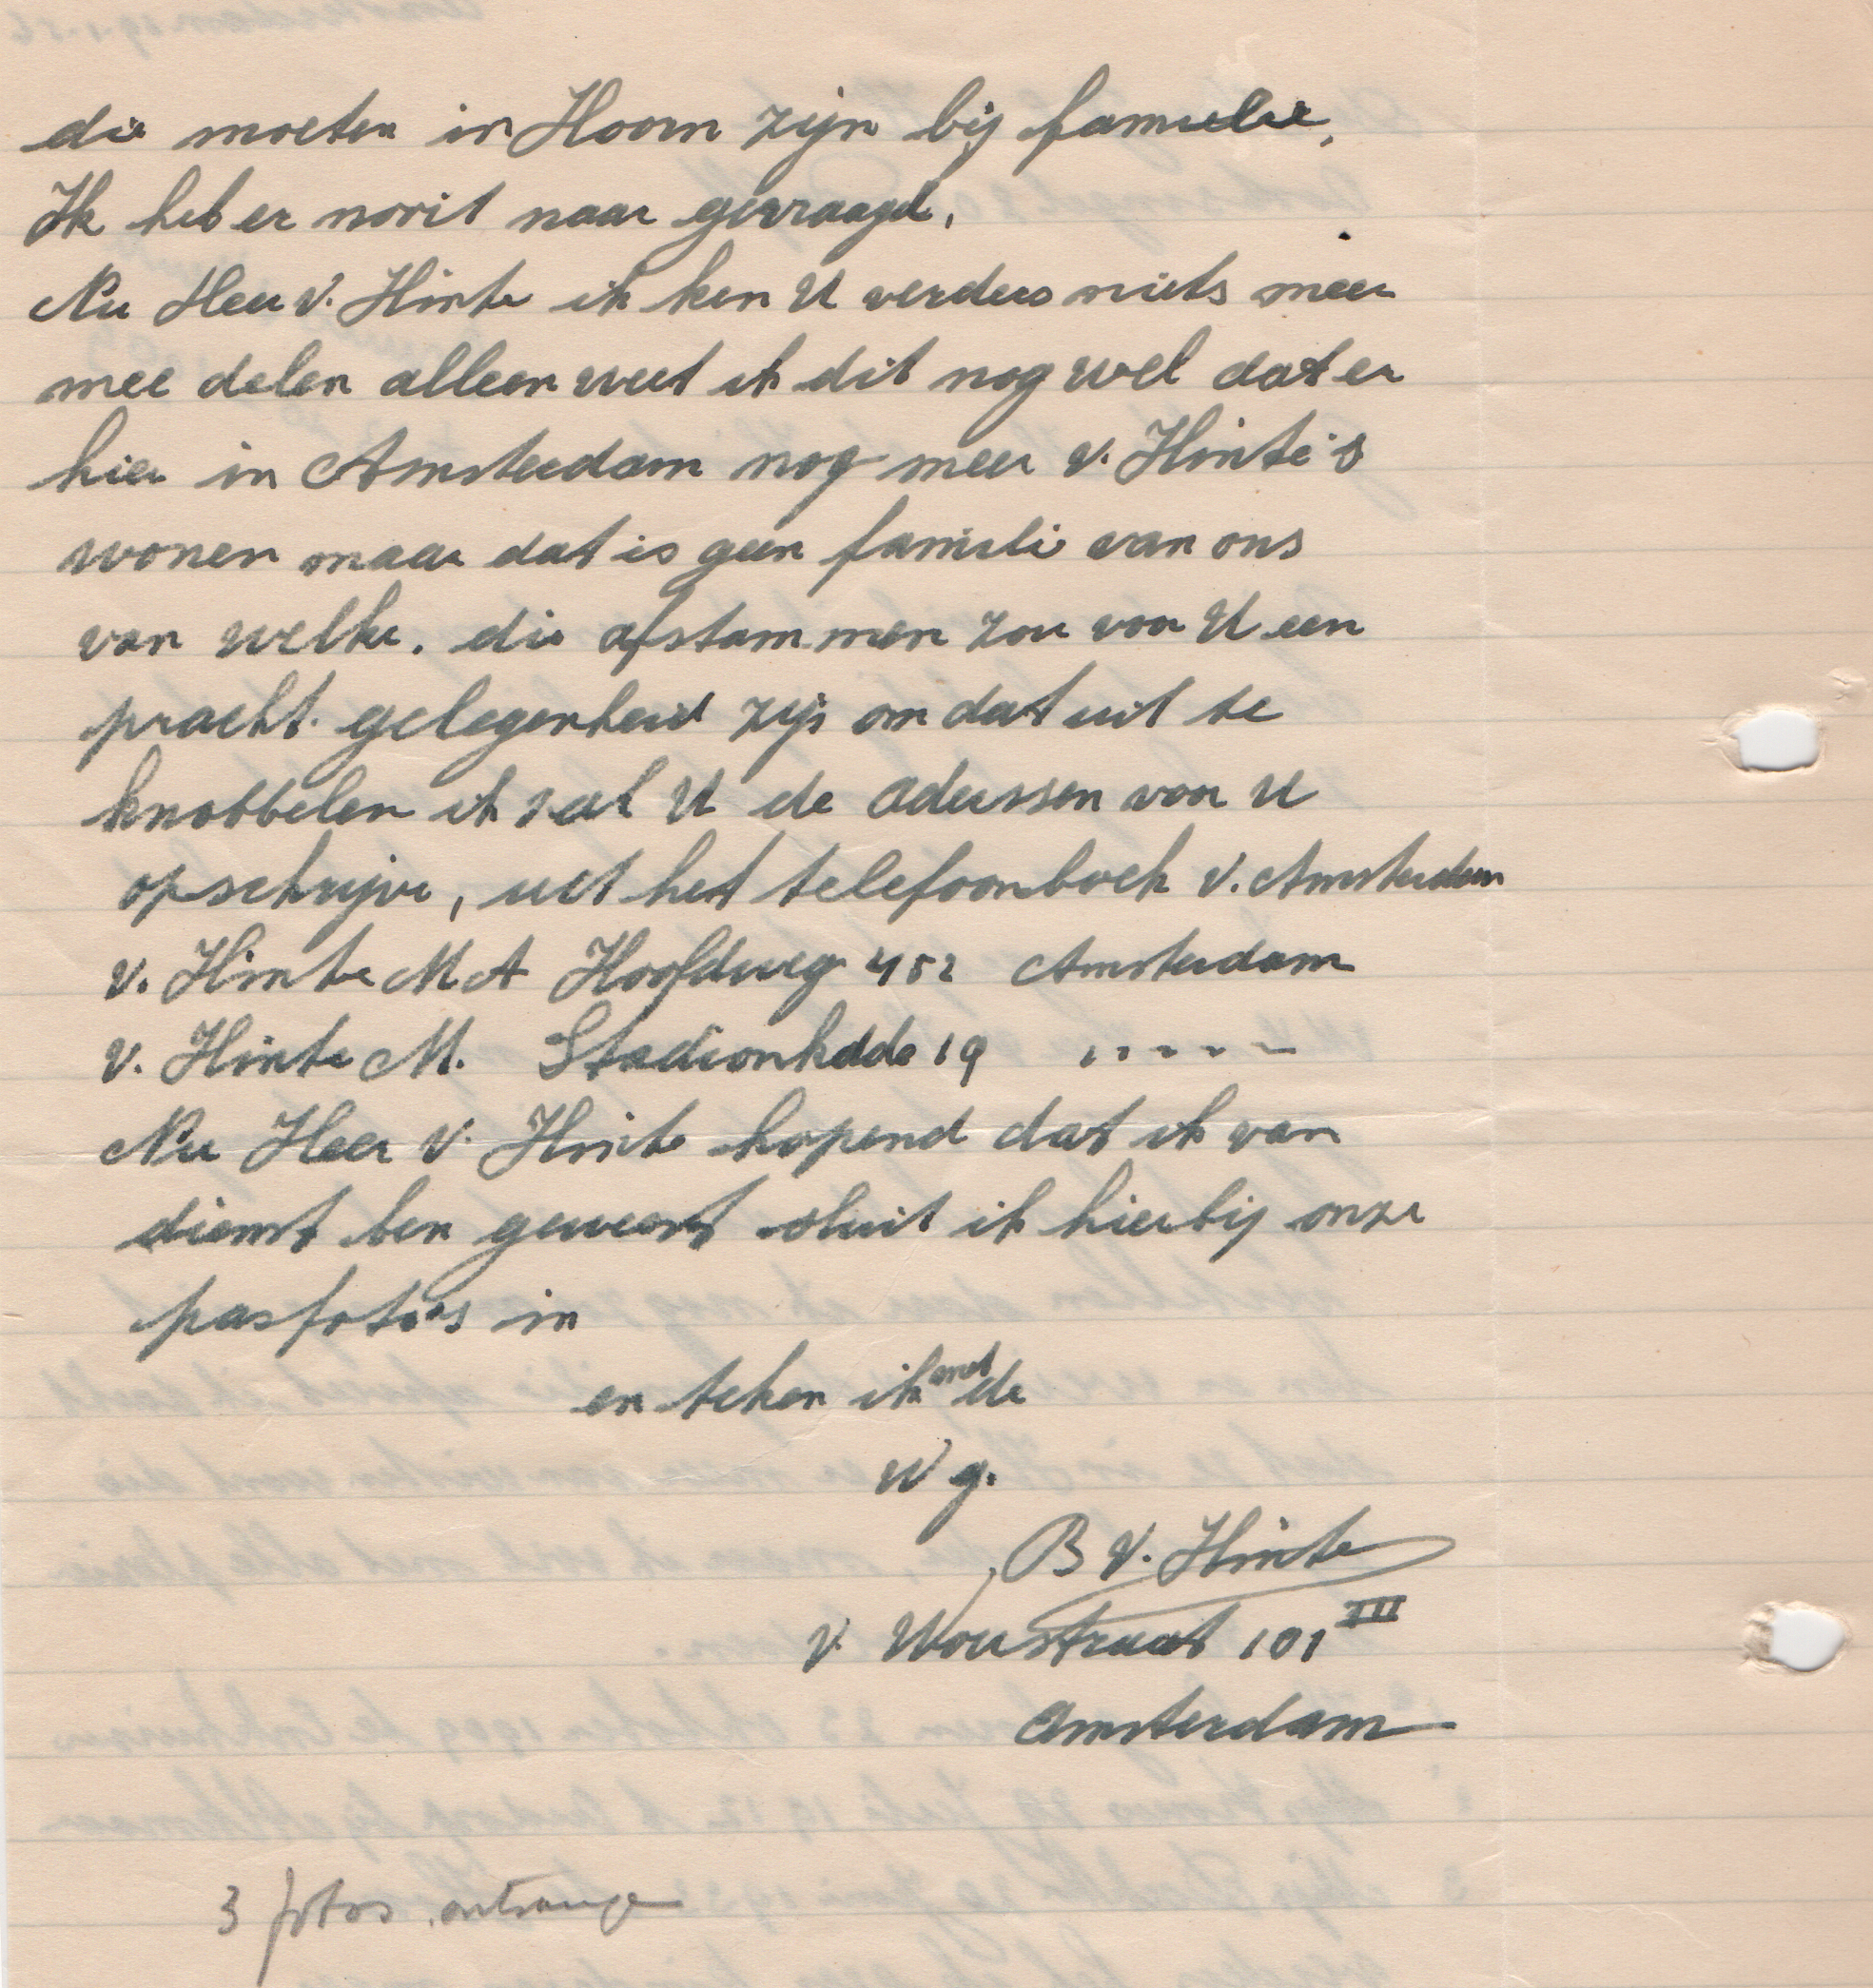 die moeten in Hoorn zijn bij familie,
Ik heb er nooit naar gevraagd.
Nu Heer v. Hinte ik ken U verders niets meer
mee delen alleen weet ik dit nog wel dat er
hier in Amsterdam nog meer v. Hinte's
wonen maar dat is geen familie van ons
van welke. die afstammen zou voor U een
pracht. gelegenheid zijn om dat uit te
knobbelen ik zal U de adressen voor U
opschrijve, uit het telefoonboek v. Amsterdam
v. Hinte M A Hoofdweg 452 Amsterdam
v. Hinte M. Stadionkade 19 -----
Nu Heer v. Hinte hopend dat ik van
dienst ben geweest sluit ik hierbij onze
pasfoto's in
en teken ik met de
W g.
B v. Hinte
v Woustraat 101 III
Amsterdam
3 fotos ontvange